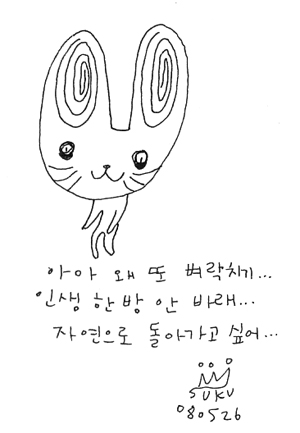 아아 왜 또 벼락치기...
인생 한 방 안 바래...
자연으로 돌아가고 싶어...
SUKU
080526